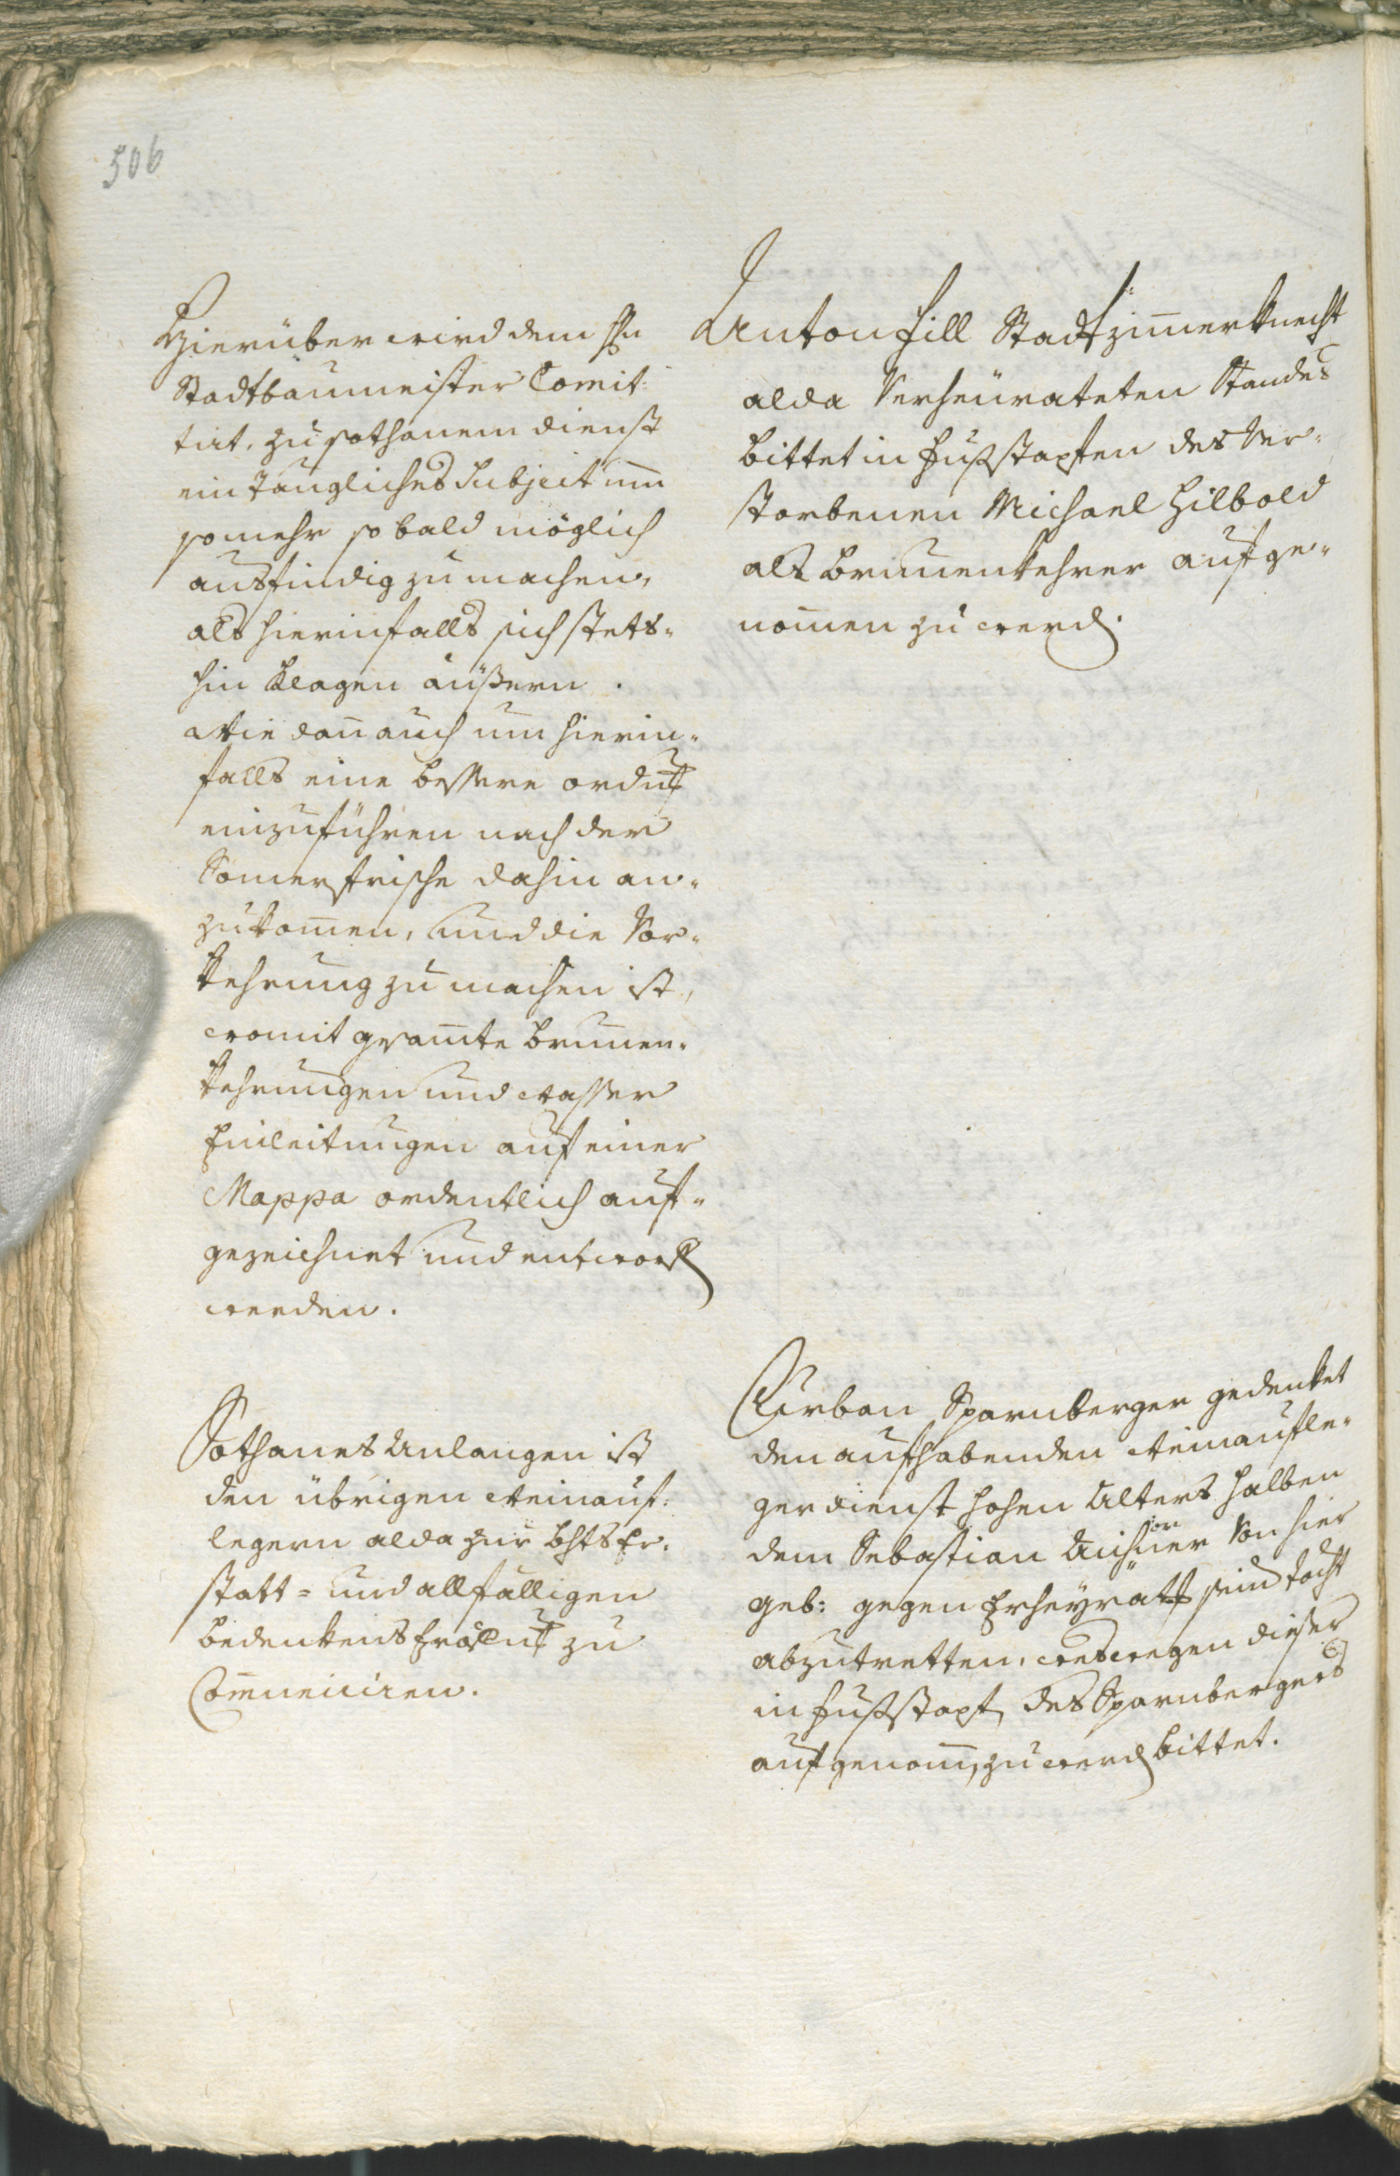 506
Hierüber wird dem H̅n
Stadtbaumeister Comit-
tirt, zu sothanem dienst
ein taugliches Subject um̅
somehr so bald möglich
ausfindig zu machen,
als hierinfalls sich stets-
hin klagen äußern.
Wie dan̅ auch um hierin-
falls eine bessere ordn̅g
einzuführen nach der
Som̅erfrische dahin an-
zukom̅en, und die Vor-
kehrung zu machen ist,
womit gesam̅te brun̅en-
kehrungen und wasser
Einleitungen auf einer
Mappa ordentlich auf-
gezeichnet und entworf(en)
werden.
Anton Hill Stadtzim̅erknecht
alda Verheurateten Standes
bittet in Fußstapfen des Ver-
storbenen Michael Hilbold
als brunnenkehrer aufge-
nom̅en zu werd(en).
Sothanes Anlangen ist
den übrigen Weinauf-
legern alda zur brhts Er-
statt- und allfälligen
bedenkens Eröffn̅g zu
Com̅uniciren.
Urban Sparnberger gedenket
den aufhabenden Weinaufle-
ger dienst hohen Alters halben
dem Sebastian von hier
geb: gegen Erheyrat(un)g sein(er) tocht(er)
abzutretten, weswegen dieser
in Fußstapf(en) des Sparnbergers
aufgenom̅(en) zu werd(en) bittet.